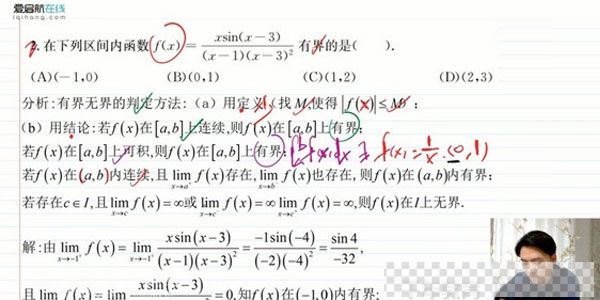 爱启航在线
iqihang.com
2. 在下列区间内函数 f(x) = \frac{x\sin(x-3)}{(x-1)(x-3)^2} 有界的是( ).
(A)(-1,0) (B)(0,1) (C)(1,2) (D)(2,3)
分析:有界无界的判定方法:(a)用定义(找M,使得|f(x)|≤M);
(b)用结论:若f(x)在[a,b]上连续,则f(x)在[a,b]上有界;
若f(x)在[a,b]上可积,则f(x)在[a,b]上有界; ∫_a^b f(x)dx ∃ f(x)=\frac{1}{x} (0,1)
若f(x)在(a,b)内连续,且\lim_{x→a^+}f(x)存在,\lim_{x→b^-}f(x)也存在,则f(x)在(a,b)内有界;
若存在c∈I,且\lim_{x→c}f(x)=∞或\lim_{x→c^-}f(x)=∞\lim_{x→c^+}f(x)=∞,则f(x)在I上无界.
解:由\lim_{x→-1^+}f(x)=\lim_{x→-1^+}\frac{x\sin(x-3)}{(x-1)(x-3)^2}=\frac{-1\sin(-4)}{(-2)(-4)^2}=\frac{\sin4}{-32},
且\lim f(x)=\lim\frac{x\sin(x-3)}{}=0,知f(x)在(-1,0)内有界;